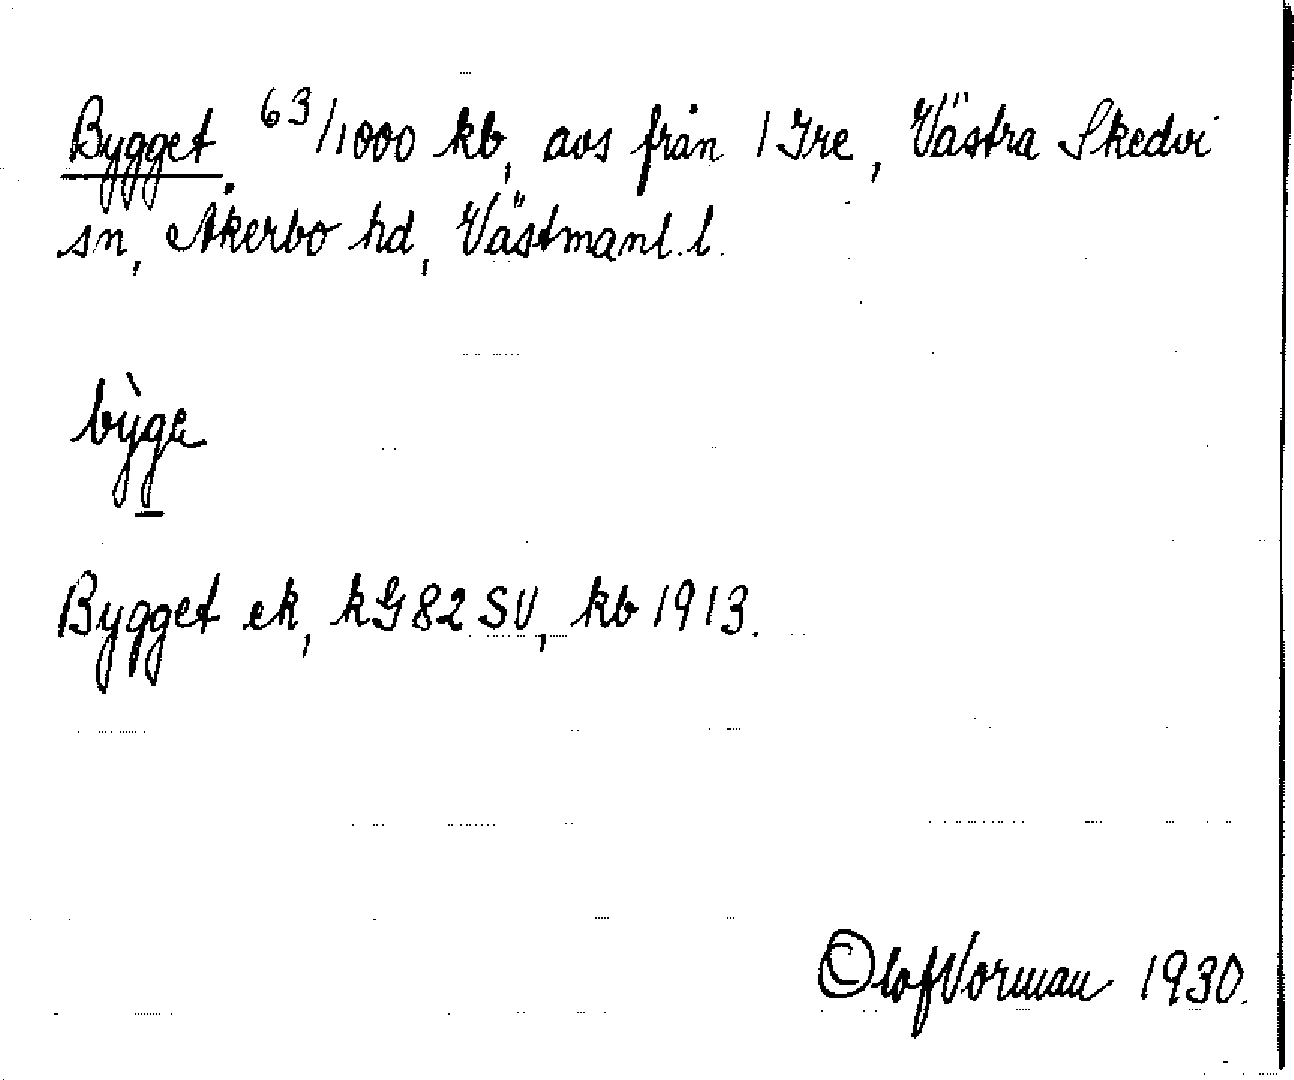 Bygget. 63/1000 kb, avs från 1 Ire, Västra Skedvi
sn, Åkerbo hd, Västmanl. l.
bỳge
Bygget ek, kG82SV, kb 1913.
Olof Vorman 1930.